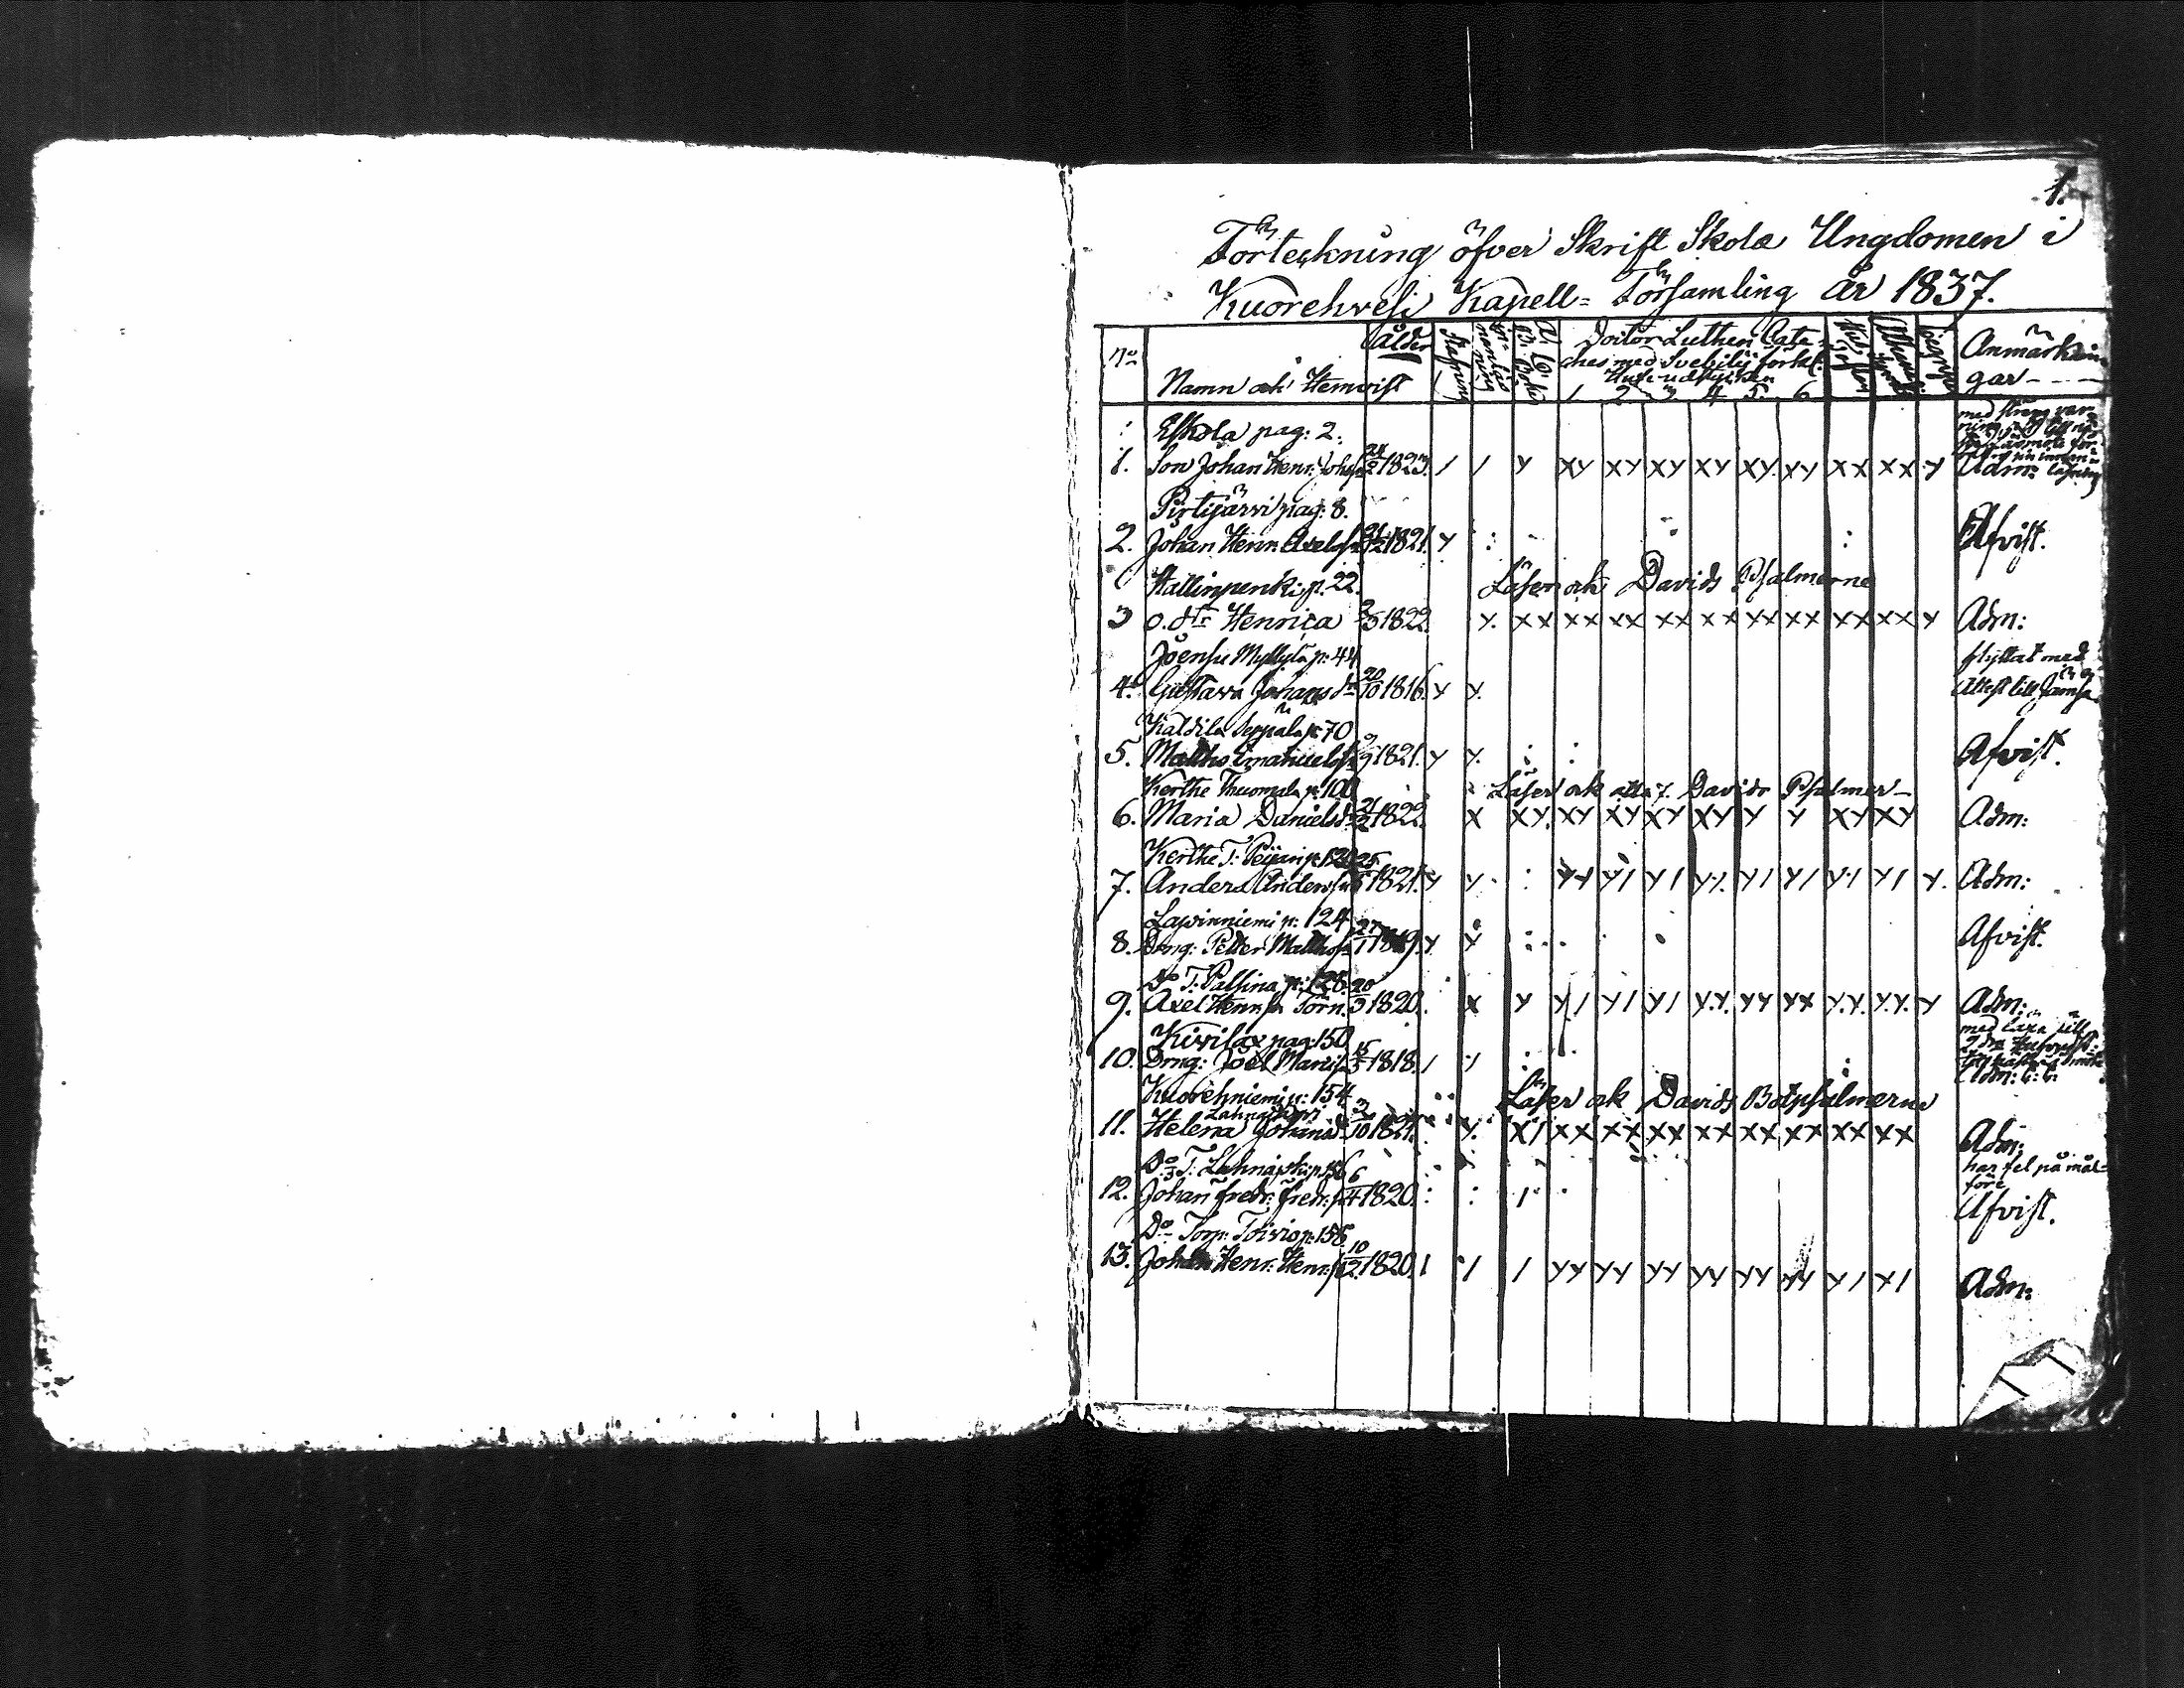 1.
Förteckning öfver Skrift Skola Ungdomen i
Kuorehvesi Kapell= Församling år 1837.
No Namn och Hemvist ålder Stafning Innanläsning A. b. Boken Doctor Lutheri Cateches med Svebilii förkl. 1 2 3 4 5 6 Hustaflan Athanasii Begrepp Anmärkningar
Eskola pag: 2.
1. Son Johan Henr: Johss 1823. / / y xy xy xy xy xy xy xx xx y Adm:
Pirtijärvi pag: 8.
2. Johan Henr: Axelss 1821. y Afvist.
Hallinpenki p. 22. Läser ock Davids Psalmerne
3 o. dtr Henrica 1822. y. xx xx xx xx xx xx xx xx xx y Adm:
Joensu Myllylä p: 44 flyttat med
4. Gustava Johansdr 20/10 1816. y y. Attest till Jämsä
Kaldila Seppälä p: 70
5. Matths Emanuelss 1821. y y. Afvist.
Kerthe Thuomala p. 100 Läser ock alla 7. Davids Psalmer
6. Maria Danielsdr 1822. x xy. xy xy xy xy y y xy xy Adm:
Kerthe T: 
7. Anders Anderss 1821. y y yy y/ y/ y/ y/ y/ y/ y/ y. Adm:
Lavinniemi p: 124
8. Drng: Petter Matthss 27/1 1819. y. y Afvist.
Do T: Palsina p: 128.
9. Axel Henrss Törn. 20/3 1820. x y y/ y/ y/ y.y. yy yx y.y. y.y. y Adm:
Kivilax pag: 150 med läxa till
10. Drng: Joel Mariss 1818. / / Adm:
Kuorehniemi p: 154 Läser ock Davids Botpsalmerne
11. Helena Johansdr 1821. y. x/ xx xx xx xx xx xx xx xx Adm:
Do T: p: 156 har fel på målföre
12. Johan Fredr: Fredr:ss 6/4 1820. / Afvist.
Do Torp: Toivio p: 158
13. Johan Henr: Henr:ss 10/12 1820. / / / yy yy yy yy yy yy y/ x/ Adm: